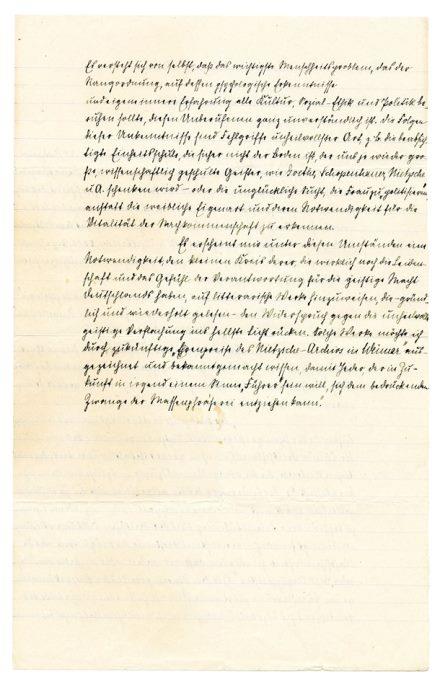 Es versteht sich von selbst, daß das wichtigste Menschheitsproblem, das der
Rangordnung, auf dessen psychologische Erkenntnisse
und eigene innere Erfahrung alle Kultur, Sozial-Ethik und Politik be-
ruhen sollte, diesen Unberufenen ganz unverständlich ist. Die Folgen
dieser Unkenntnisse sind Fehlgriffe unheilvollster Art, z. B. die
Einheitsschule, die sicher nicht der Boden ist, der uns je wieder gro-
ße, wissenschaftlich geschulte Geister, wie Goethe, Schopenhauer, Nietzsche
u. A. schenken wird – oder die unglückliche Sucht, die Frau zu
anstatt die weibliche Eigenart und deren Notwendigkeit für die
Vitalität der Nachkommenschaft zu erkennen.
Es erscheint mir unter diesen Umständen eine
Notwendigkeit, den kleinen Kreis derer, die wirklich noch die Leiden-
schaft und das Gefühl der Verantwortung für die geistige Macht
Deutschlands haben, auf litterarische Werke hinzuweisen, die – gründ-
lich und wiederholt gelesen – den Widerspruch gegen die unheilvolle
geistige Verflachung ins hellste Licht rücken. Solche Werke möchte ich
durch zukünftige Ehrenpreise des Nietzsche-Archivs in Weimar aus-
gezeichnet und bekanntgemacht wissen, damit Jeder, der in Zu-
kunft in irgend einem Sinne „Führer" sein will, sich dem bedrückenden
Zwange der entziehen kann.